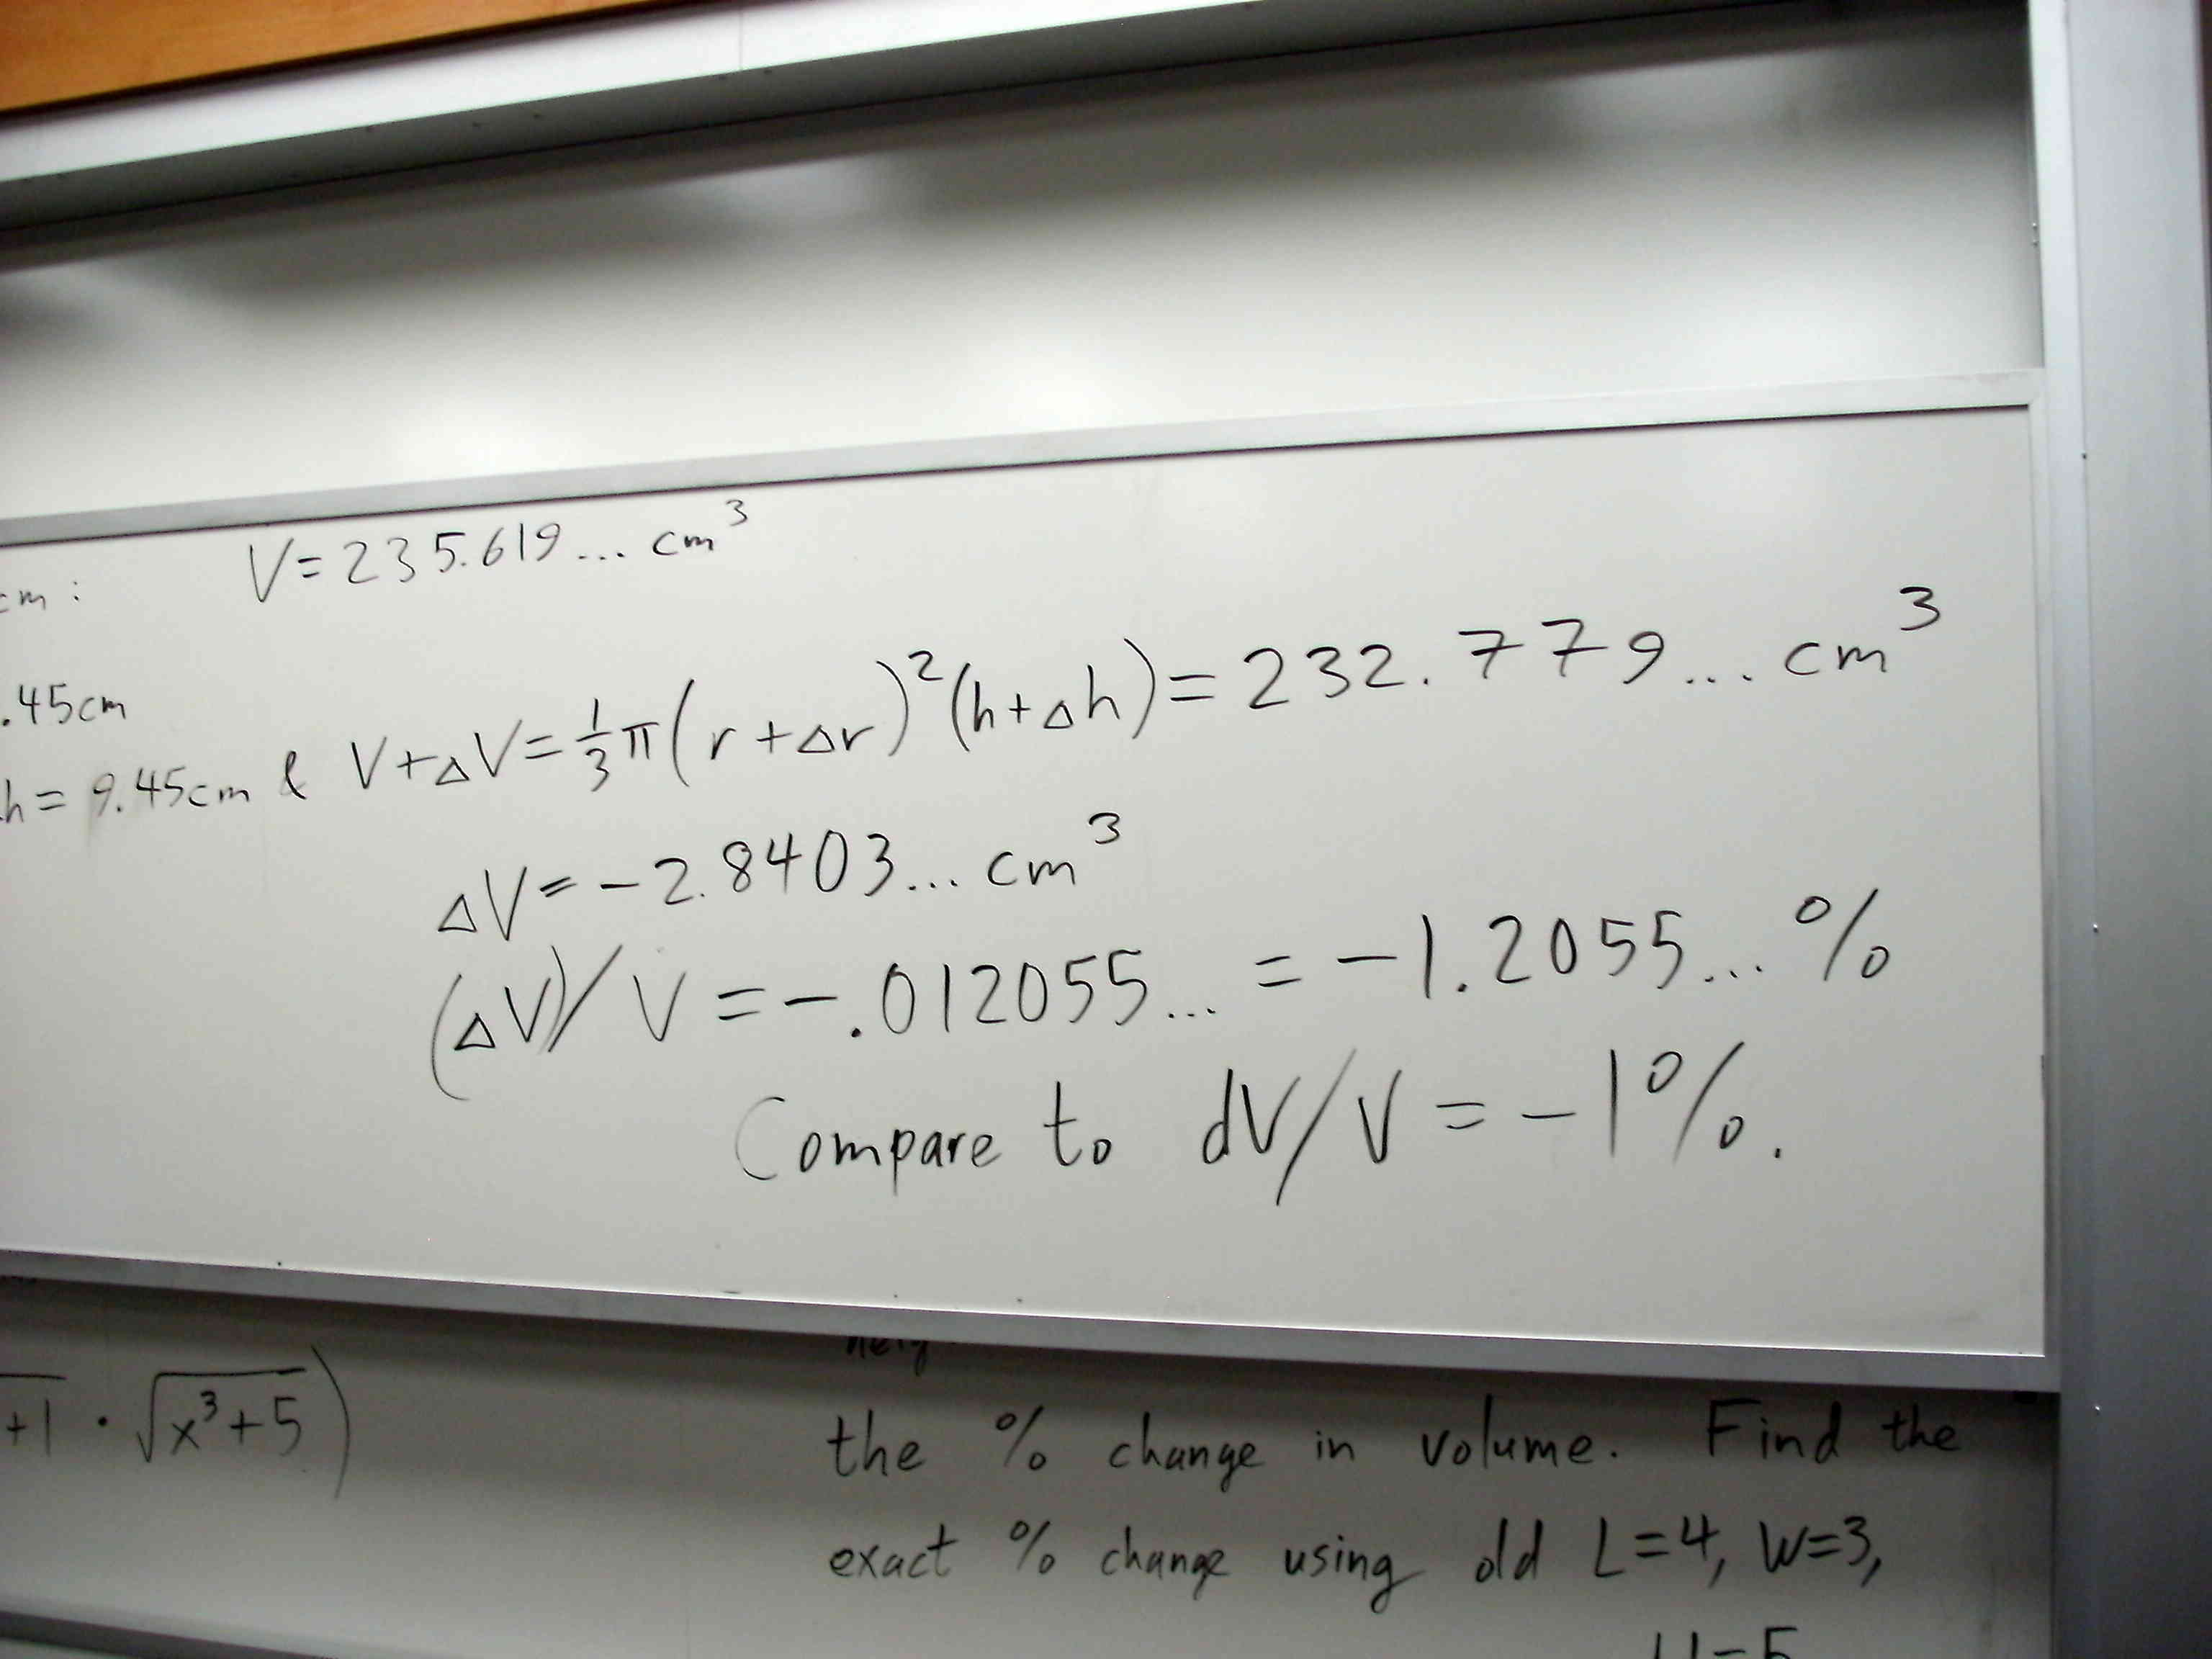 cm: V=235.619... cm³
.45cm
h=9.45cm & V+ΔV=⅓π(r+Δr)²(h+Δh)=232.779... cm³
ΔV=-2.8403... cm³
(ΔV)/V=-.012055... = -1.2055...%
Compare to dV/V = -1%.
+1 · √(x³+5) )
the % change in volume. Find the
exact % change using old L=4, W=3,